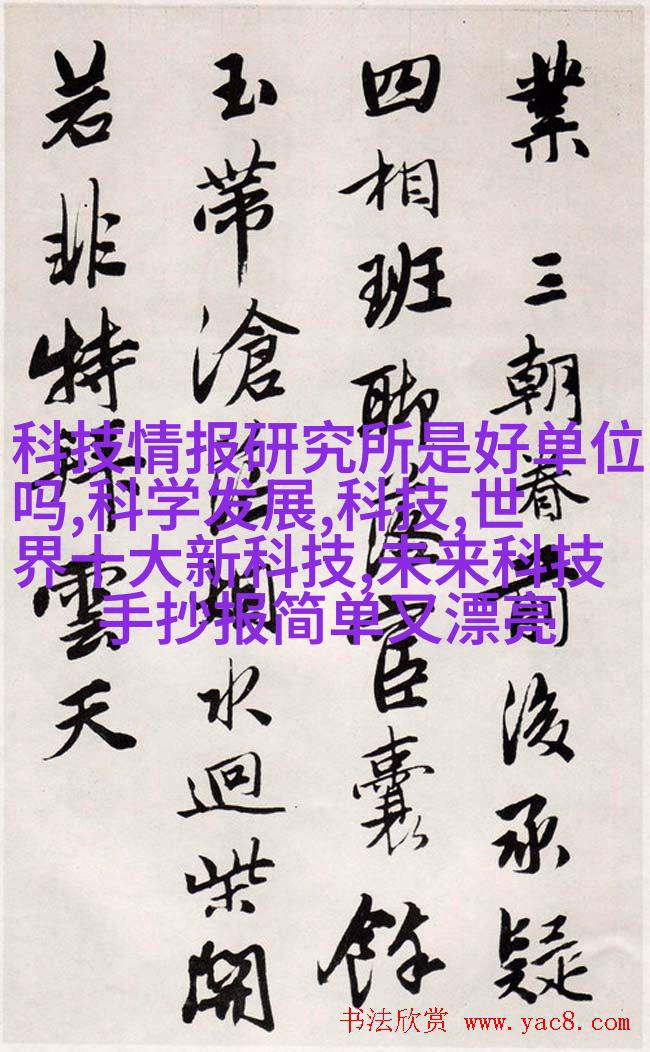 業三朝眷前後承疑
四相班聯臣囊餘
玉帶滄水迴柴開
若非特雲天
科技情报研究所是好单位
吗,科学发展,科技,世
界十大新科技,未来科技
手抄报简单又漂亮
书法欣赏 www.yac8.com